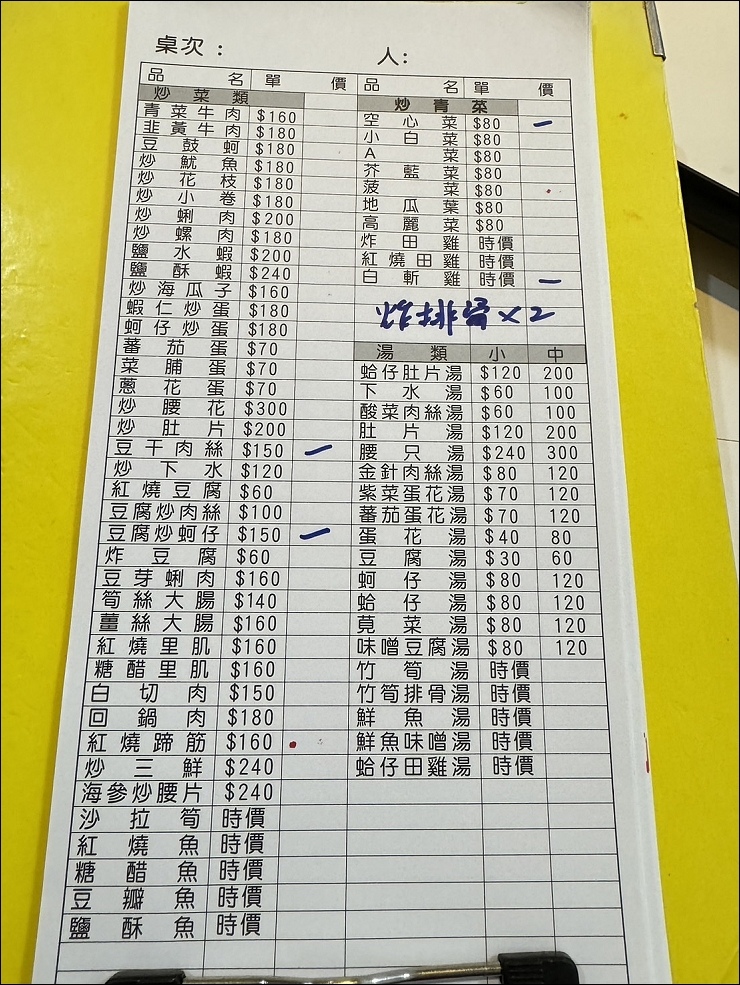 桌次： 人：
品名 單價
炒菜類
青菜牛肉 $160
韭黃牛肉 $180
豆鼓蚵 $180
炒魷魚 $180
炒花枝 $180
炒小卷 $180
炒蜊肉 $200
炒螺肉 $180
鹽水蝦 $200
鹽酥蝦 $240
炒海瓜子 $160
蝦仁炒蛋 $180
蚵仔炒蛋 $180
蕃茄蛋 $70
菜脯蛋 $70
蔥花蛋 $70
炒腰花 $300
炒肚片 $200
豆干肉絲 $150 一
炒下水 $120
紅燒豆腐 $60
豆腐炒肉絲 $100
豆腐炒蚵仔 $150 一
炸豆腐 $60
豆芽蜊肉 $160
筍絲大腸 $140
薑絲大腸 $160
紅燒里肌 $160
糖醋里肌 $160
白切肉 $150
回鍋肉 $180
紅燒蹄筋 $160
炒三鮮 $240
海參炒腰片 $240
沙拉筍 時價
紅燒魚 時價
糖醋魚 時價
豆瓣魚 時價
鹽酥魚 時價
品名 單價
炒青菜
空心菜 $80 一
小白菜 $80
A菜 $80
芥藍菜 $80
菠菜 $80
地瓜葉 $80
高麗菜 $80
炸田雞 時價
紅燒田雞 時價
白斬雞 時價 一
湯類 小 中
蛤仔肚片湯 $120 200
下水湯 $60 100
酸菜肉絲湯 $60 100
肚片湯 $120 200
腰只湯 $240 300
金針肉絲湯 $80 120
紫菜蛋花湯 $70 120
蕃茄蛋花湯 $70 120
蛋花湯 $40 80
豆腐湯 $30 60
蚵仔湯 $80 120
蛤仔湯 $80 120
莧菜湯 $80 120
味噌豆腐湯 $80 120
竹筍湯 時價
竹筍排骨湯 時價
鮮魚湯 時價
鮮魚味噌湯 時價
蛤仔田雞湯 時價